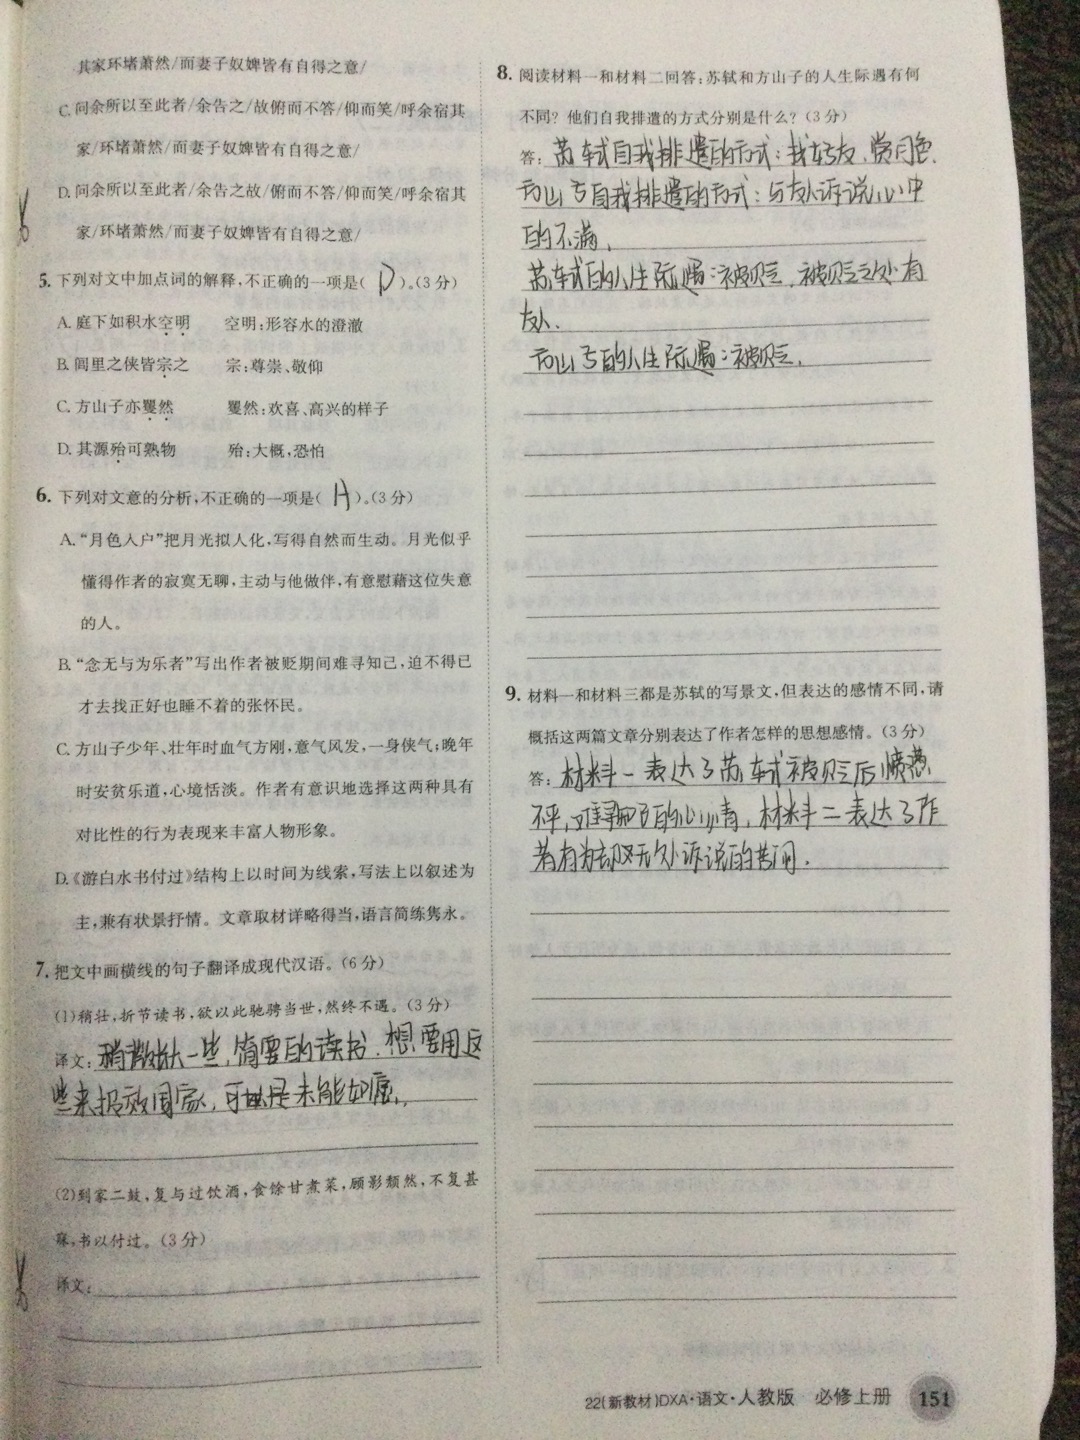 其家环堵萧然/而妻子奴婢皆有自得之意/
C.问余所以至此者/余告之/故俯而不答/仰而笑/呼余宿其
家/环堵萧然/而妻子奴婢皆有自得之意/
D.问余所以至此者/余告之故/俯而不答/仰而笑/呼余宿其
家/环堵萧然/而妻子奴婢皆有自得之意/
5.下列对文中加点词的解释,不正确的一项是( D )。(3分)
A.庭下如积水空明 空明:形容水的澄澈
B.闾里之侠皆宗之 宗:尊崇、敬仰
C.方山子亦矍然 矍然:欢喜、高兴的样子
D.其源殆可熟物 殆:大概,恐怕
6.下列对文意的分析,不正确的一项是( A )。(3分)
A.“月色入户”把月光拟人化,写得自然而生动。月光似乎
懂得作者的寂寞无聊,主动与他做伴,有意慰藉这位失意
的人。
B.“念无与为乐者”写出作者被贬期间难寻知己,迫不得已
才去找正好也睡不着的张怀民。
C.方山子少年、壮年时血气方刚,意气风发,一身侠气;晚年
时安贫乐道,心境恬淡。作者有意识地选择这两种具有
对比性的行为表现来丰富人物形象。
D.《游白水书付过》结构上以时间为线索,写法上以叙述为
主,兼有状景抒情。文章取材详略得当,语言简练隽永。
7.把文中画横线的句子翻译成现代汉语。(6分)
(1)稍壮,折节读书,欲以此驰骋当世,然终不遇。(3分)
译文:稍微长大一些,简要的读书.想要用这
些来报效国家,可是未能如愿.
(2)到家二鼓,复与过饮酒,食馀甘煮菜,顾影颓然,不复甚
寐,书以付过。(3分)
译文:
8.阅读材料一和材料二回答:苏轼和方山子的人生际遇有何
不同?他们自我排遣的方式分别是什么?(3分)
答:苏轼自我排遣的方式:找好友,赏月色.
方山子自我排遣的方式:与友人诉说心中
的不满,
苏轼的人生际遇:被贬,被贬之处有
友人.
方山子的人生际遇:被贬.
9.材料一和材料三都是苏轼的写景文,但表达的感情不同,请
概括这两篇文章分别表达了作者怎样的思想感情。(3分)
答:材料一表达了苏轼被贬后愤懑
不平,的心情,材料二表达了作
者有为却又无处诉说的苦闷.
22(新教材)DXA·语文·人教版 必修上册 151